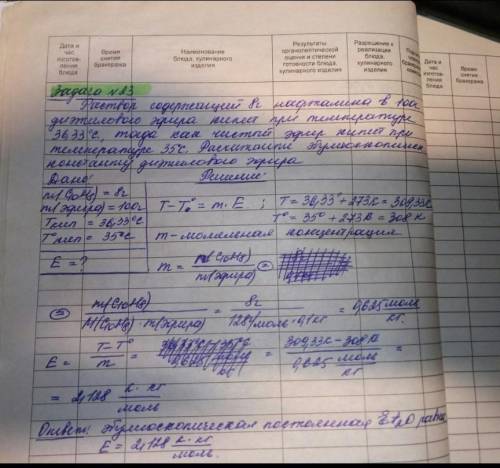 Дата и час изготовления блюда
Время снятия бракеража
Наименование блюда, кулинарного изделия
Результаты органолептической оценки и степени готовности блюда, кулинарного изделия
Разрешение к реализации блюда, кулинарного изделия
Время снятия
Задача №83
Раствор содержащий 8г нафталина в 100г
диэтилового эфира кипит при температуре
36,33°С, тогда как чистый эфир кипит при
температуре 35°С. Рассчитайте эбулиоскопическ
константу диэтилового эфира
Дано: Решение:
m(C10H8) = 8г
m(эфира) = 100г
Tкип = 36,33°C
T°кип = 35°C
E = ?
T-T° = m·E ; T = 36,33°+273K = 309,33K
T° = 35°+273K = 308K
m - моляльная концентрация
m = n(C10H8) / m(эфира) =
= m(C10H8) / M(C10H8)·m(эфира) = 8г / 128г/моль·0,1кг = 0,625 моль/кг.
E = T-T° / m = = 309,33K-308K / 0,625 моль/кг =
= 2,128 К·кг/моль
Ответ: эбулиоскопическая постоянная Et2O равна
E = 2,128 К·кг/моль.